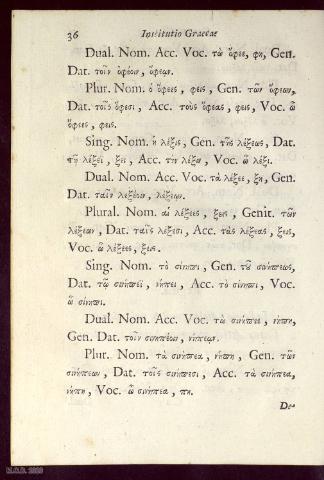 36 Institutio Graecae
Dual. Nom. Acc. Voc. τὼ ὄφεε, φη, Gen.
Dat. τοῖν ὀφέοιν, ὄφεῳν.
Plur. Nom. ὁ ὄφεες, φεις, Gen. τῶν ὄφεων,
Dat. τοῖς ὄφεσι, Acc. τοὺς ὄφεας, φεις, Voc. ὦ
ὄφεες, φεις.
Sing. Nom. ἡ λέξις, Gen. τῆς λέξεως, Dat.
τῇ λέξεϊ, ξει, Acc. τὴν λέξιν, Voc. ὦ λέξι.
Dual. Nom. Acc. Voc. τὰ λέξεε, ξη, Gen.
Dat. ταῖν λεξέοιν, λέξεῳν.
Plural. Nom. αἱ λέξεες, ξεις, Genit. τῶν
λέξεων, Dat. ταῖς λέξεσι, Acc. τὰς λέξεας, ξεις,
Voc. ὦ λέξεες, ξεις.
Sing. Nom. τὸ σίνηπι, Gen. τοῦ σινήπεως,
Dat. τῷ σινήπεϊ, νήπει, Acc. τὸ σίνηπι, Voc.
ὦ σίνηπι.
Dual. Nom. Acc. Voc. τὼ σινήπεε, νήπη,
Gen. Dat. τοῖν σινηπέοιν, νήπεῳν.
Plur. Nom. τὰ σινήπεα, νήπη, Gen. τῶν
σινήπεων, Dat. τοῖς σινήπεσι, Acc. τὰ σινήπεα,
νήπη, Voc. ὦ σινήπεα, πη.
De-